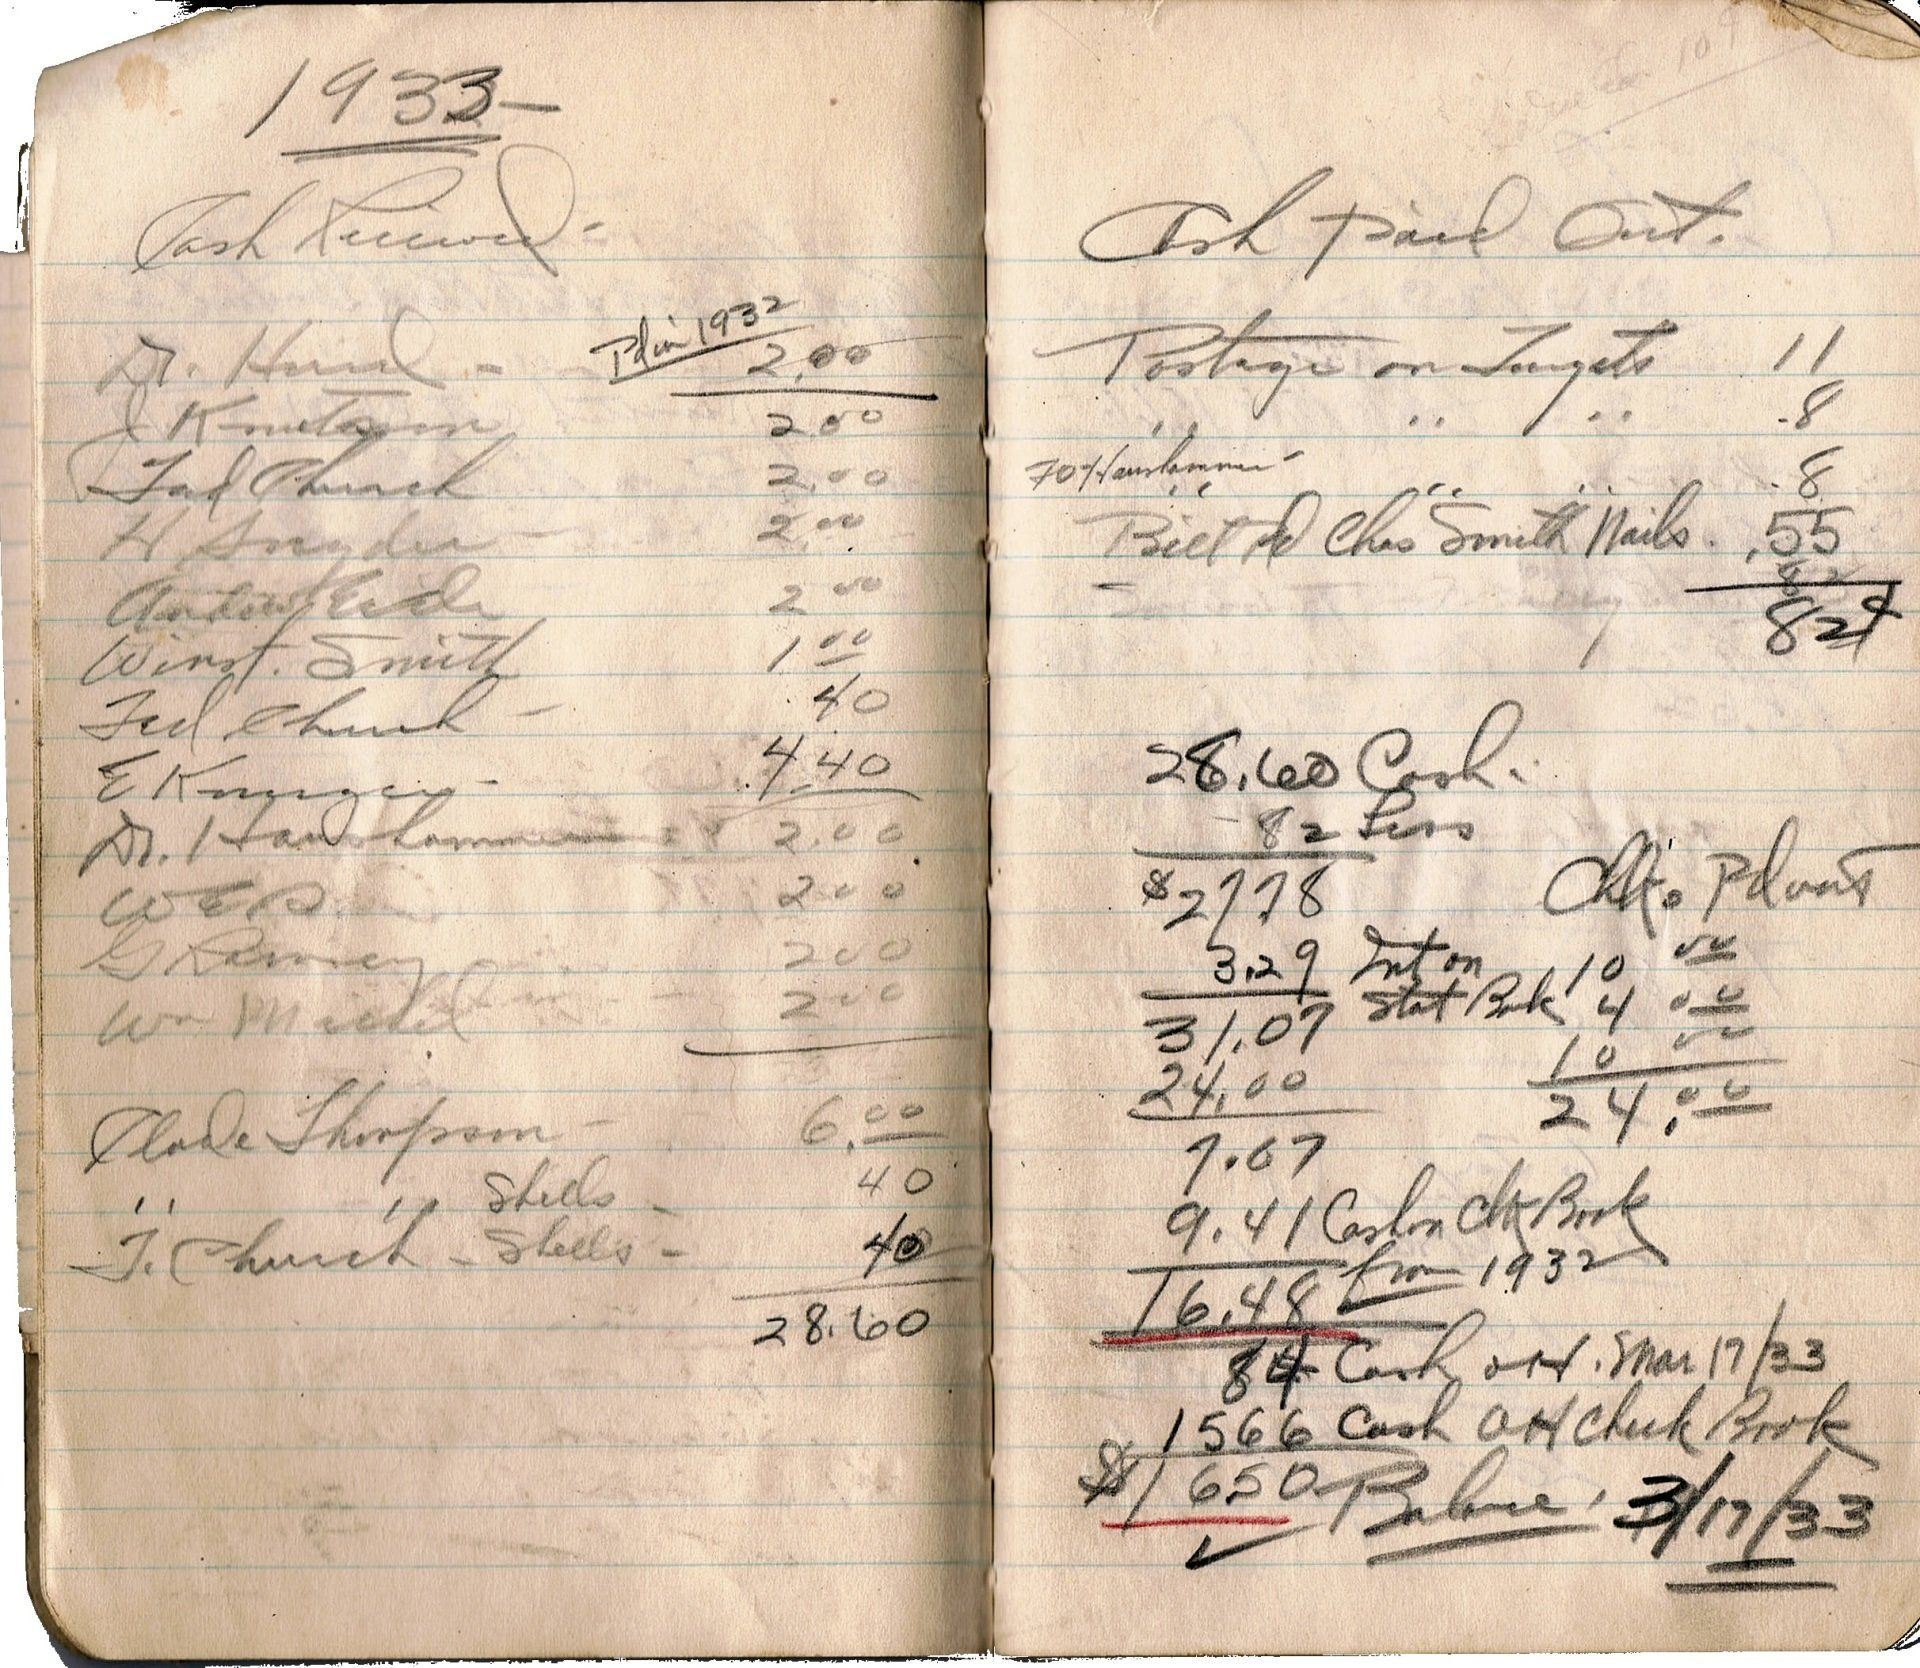 1933 -
Cash Received -
Pd in 1932
Dr. Hurd - 2.00
J Knutson 2.00
Ted Church 2.00
H Snyder - 2.00
2.00
Winst. Smith 1.00
Ted Church - 40
E Krueger - 4.40
Dr. Haushammer 2.00
W E S. 2.00
G Ramsey 2.00
Wm Michel 2.00
Clade Thompson - 6.00
,, ,, Shells - 40
T. Church - Shells - 40
28.60
Cash Paid Out.
Postage on Targets 11
,, ,, ,, .8
To Haushammer -
,, ,, ,, .8
Bill Pd Chas Smith Nails. .55
82
82¢
28.60 Cash.
- 82 Less
$27.78
3.29 Int on
Stat Bank
31.07
24.00
7.07
9.41 Cash on Chk Book
from 1932
16.48
84 Cash OH. Mar 17/33
1566 Cash OH Check Book
$1650 Balance 3/17/33
Chk. Pd out
10 00
4 00
10 00
24.00